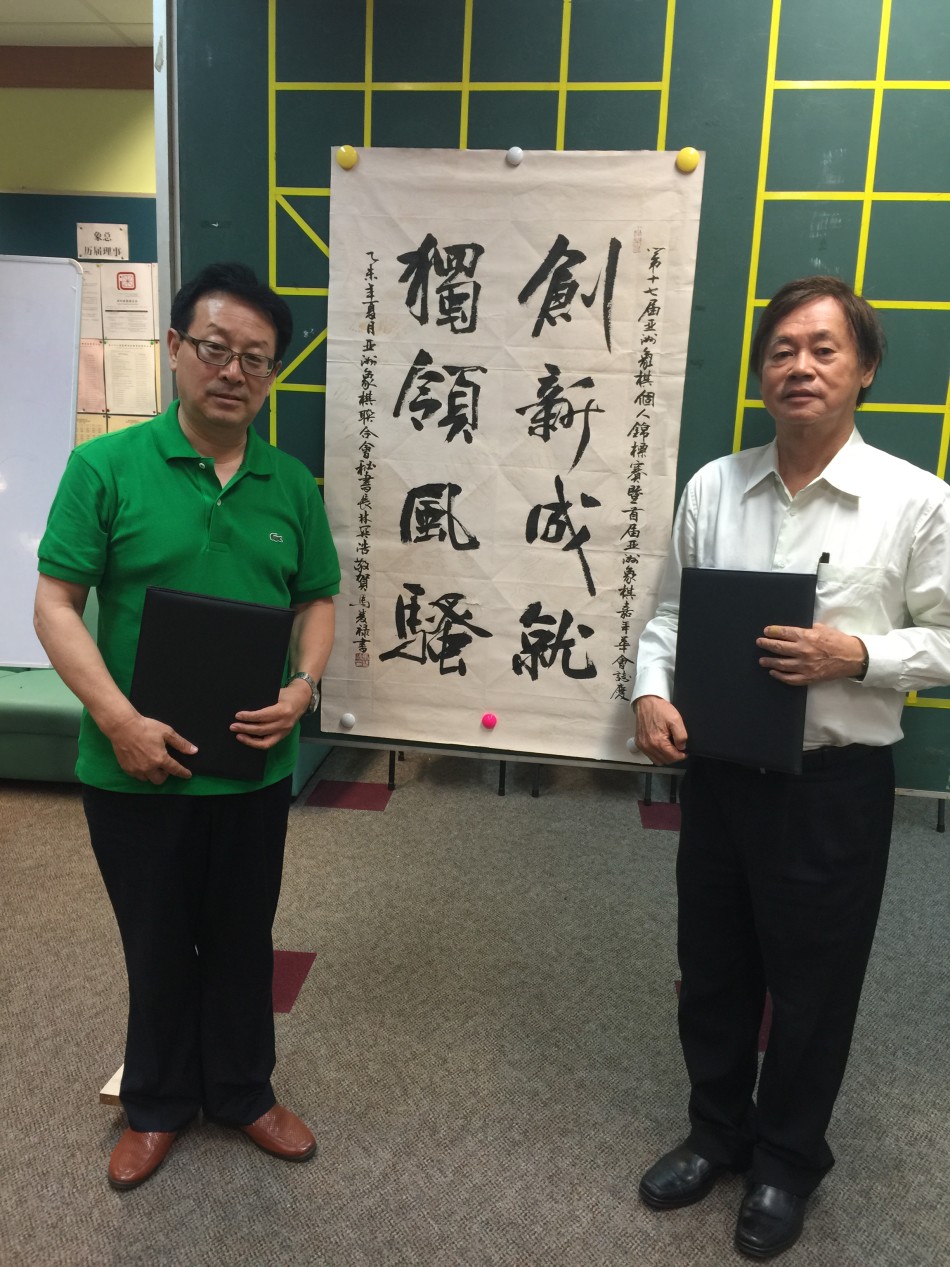 第十七届亚洲象棋個人錦標賽暨首届亚洲象棋嘉年華會誌慶
創新成就
獨領風騷
乙未年夏月亚洲象棋联合會秘書長林关浩敬賀馬發祿書
象总
历届理事